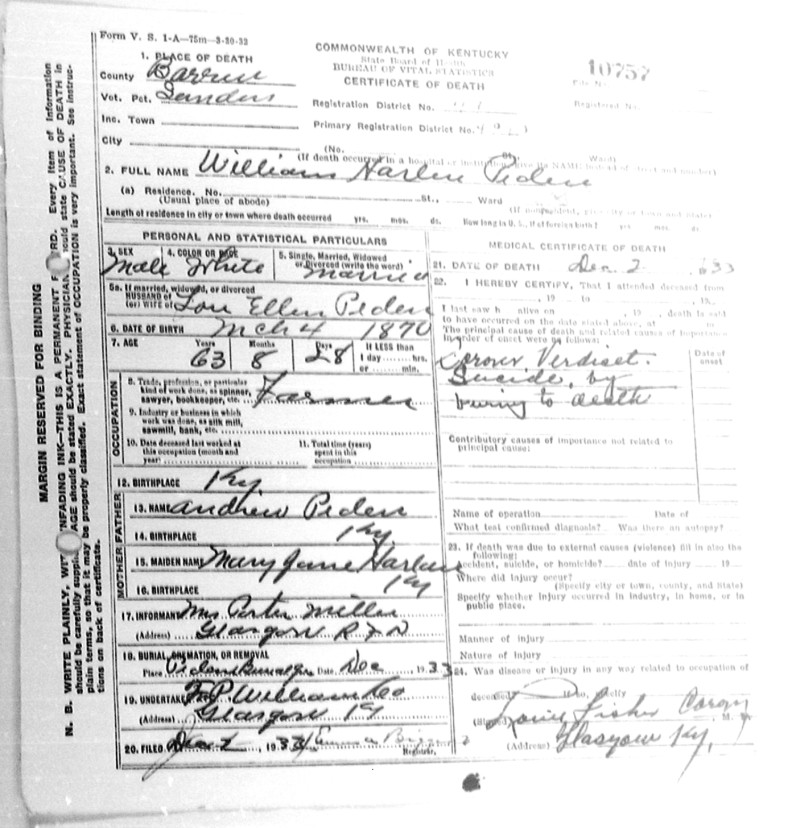 Form V. S. 1-A—75m—3-20-32
COMMONWEALTH OF KENTUCKY
State Board of Health
BUREAU OF VITAL STATISTICS
CERTIFICATE OF DEATH
10757
1. PLACE OF DEATH
County Barren
Vot. Pct. Sanders
Inc. Town
City
Registration District No.
Registered No.
Primary Registration District No.
(No. St. Ward)
(If death occurred in a hospital or institution, give its NAME instead of street and number)
2. FULL NAME William Harlen Peden
(a) Residence. No. St., Ward
(Usual place of abode)
Length of residence in city or town where death occurred yrs. mos. ds. How long in U. S., if of foreign birth? yrs. mos. ds.
PERSONAL AND STATISTICAL PARTICULARS
3. SEX Male
4. COLOR OR RACE White
5. Single, Married, Widowed
or Divorced (write the word) Married
5a. If married, widowed, or divorced
HUSBAND of
(or) WIFE of Lou Ellen Peden
6. DATE OF BIRTH Mch 4 1870
7. AGE Years Months Days If LESS than
63 8 28 1 day hrs.
or min.
OCCUPATION
8. Trade, profession, or particular
kind of work done, as spinner,
sawyer, bookkeeper, etc. Farmer
9. Industry or business in which
work was done, as silk mill,
sawmill, bank, etc.
10. Date deceased last worked at
this occupation (month and
year)
11. Total time (years)
spent in this
occupation
12. BIRTHPLACE Ky
FATHER
13. NAME Andrew Peden
14. BIRTHPLACE Ky
MOTHER
15. MAIDEN NAME Mary Jane Harlan
16. BIRTHPLACE Ky
17. INFORMANT Mrs Porter Miller
(Address) Glasgow
18. BURIAL, CREMATION, OR REMOVAL
Place Peden Date Dec 1933
19. UNDERTAKER Williams Co
(Address) Glasgow Ky
20. FILED 1933
Registrar.
MEDICAL CERTIFICATE OF DEATH
21. DATE OF DEATH Dec. 2
22. I HEREBY CERTIFY, That I attended deceased from
, 19 to , 19
I last saw h alive on , 19 , death is said
to have occurred on the date stated above, at
The principal cause of death and related causes of importance
in order of onset were as follows:
Date of
onset
Coroner Verdict.
Suicide, by
buring to death
Contributory causes of importance not related to
principal cause:
Name of operation Date of
What test confirmed diagnosis? Was there an autopsy?
23. If death was due to external causes (violence) fill in also the
following:
Accident, suicide, or homicide? date of injury 19
Where did injury occur?
(Specify city or town, county, and State)
Specify whether injury occurred in industry, in home, or in
public place.
Manner of injury
Nature of injury
24. Was disease or injury in any way related to occupation of
deceased? If so, specify
(Signed) Fisher Coron M. D.
(Address) Glasgow Ky,
MARGIN RESERVED FOR BINDING
N. B. WRITE PLAINLY, WIT NFADING INK—THIS IS A PERMANENT RD. Every item of information
should be carefully suppli AGE should be stated EXACTLY. PHYSICIAN ould state CAUSE OF DEATH in
plain terms, so that it may be properly classified. Exact statement of OCCUPATION is very important. See instruc-
tions on back of certificate.